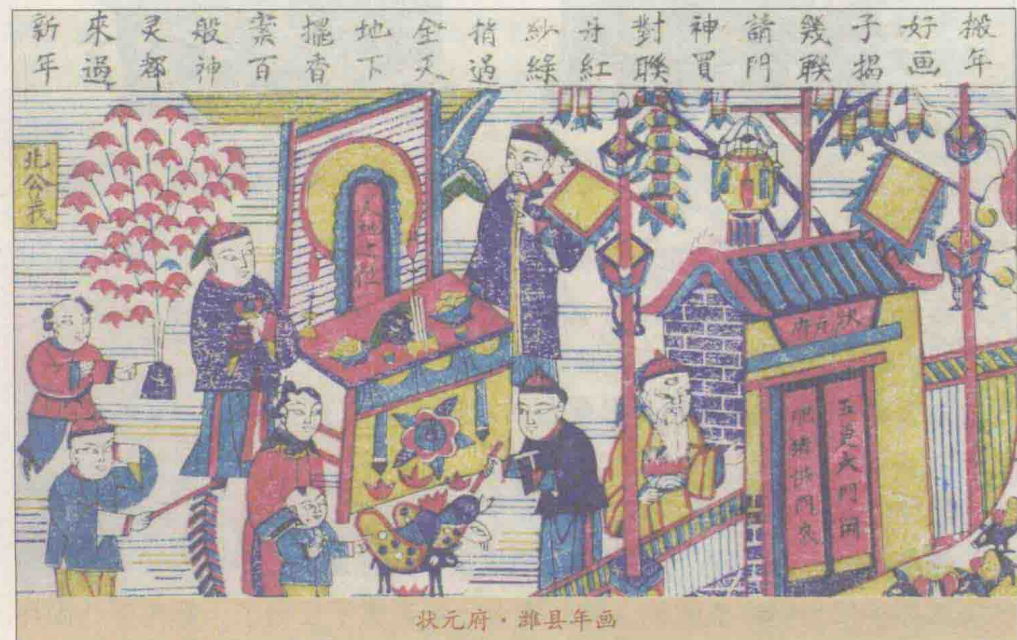 搬年好画子揭幾聯請門神買對聯丹紅紗綠捎過全天地下擺香案百般神灵都來過新年
北公義
天地之位
状元府
五更大門開
肥猪拱門來
状元府·潍县年画